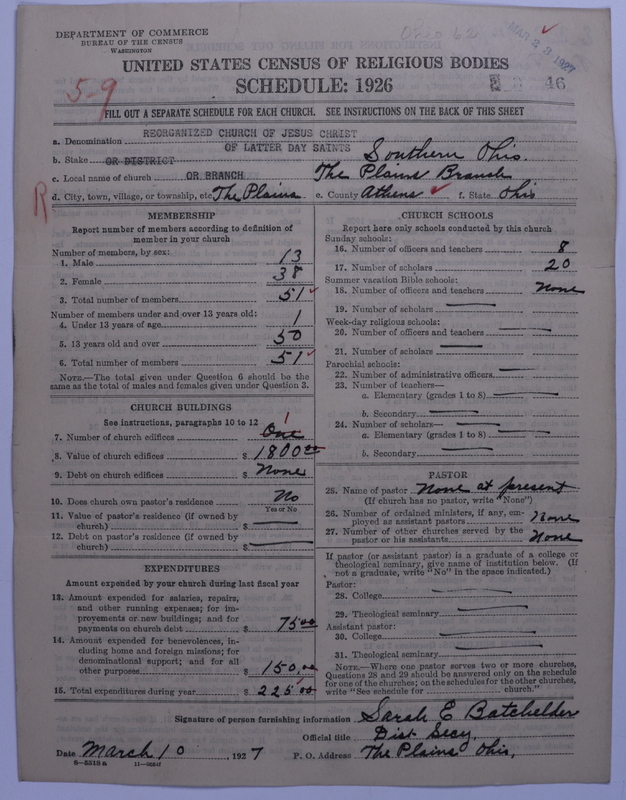 DEPARTMENT OF COMMERCE
BUREAU OF THE CENSUS
WASHINGTON
Ohio 62
MAR 23 1927
UNITED STATES CENSUS OF RELIGIOUS BODIES
SCHEDULE: 1926
59
46
FILL OUT A SEPARATE SCHEDULE FOR EACH CHURCH. SEE INSTRUCTIONS ON THE BACK OF THIS SHEET
a. Denomination REORGANIZED CHURCH OF JESUS CHRIST
OF LATTER DAY SAINTS
b. Stake OR DISTRICT Southern Ohio.
c. Local name of church OR BRANCH The Plains Branch
R
d. City, town, village, or township, etc. The Plains e. County Athens f. State Ohio
MEMBERSHIP
Report number of members according to definition of
member in your church
Number of members, by sex:
1. Male 13
2. Female 38
3. Total number of members 51
Number of members under and over 13 years old:
4. Under 13 years of age 1
5. 13 years old and over 50
6. Total number of members 51
NOTE.—The total given under Question 6 should be the
same as the total of males and females given under Question 3.
CHURCH BUILDINGS
See instructions, paragraphs 10 to 12
1
7. Number of church edifices One
8. Value of church edifices $ 1800 00
9. Debt on church edifices $ None
10. Does church own pastor's residence No
Yes or No
11. Value of pastor's residence (if owned by
church) $
12. Debt on pastor's residence (if owned by
church) $
EXPENDITURES
Amount expended by your church during last fiscal year
13. Amount expended for salaries, repairs,
and other running expenses; for im-
provements or new buildings; and for
payments on church debt $ 75 00
14. Amount expended for benevolences, in-
cluding home and foreign missions; for
denominational support; and for all
other purposes $ 150.00
15. Total expenditures during year $ 225 00
CHURCH SCHOOLS
Report here only schools conducted by this church
Sunday schools:
16. Number of officers and teachers 8
17. Number of scholars 20
Summer vacation Bible schools:
18. Number of officers and teachers None
19. Number of scholars
Week-day religious schools:
20. Number of officers and teachers
21. Number of scholars
Parochial schools:
22. Number of administrative officers
23. Number of teachers—
a. Elementary (grades 1 to 8)
b. Secondary
24. Number of scholars—
a. Elementary (grades 1 to 8)
b. Secondary
PASTOR
25. Name of pastor None at present
(If church has no pastor, write "None")
26. Number of ordained ministers, if any, em-
ployed as assistant pastors None
27. Number of other churches served by the
pastor or his assistants None
If pastor (or assistant pastor) is a graduate of a college or
theological seminary, give name of institution below. (If
not a graduate, write "No" in the space indicated.)
Pastor:
28. College
29. Theological seminary
Assistant pastor:
30. College
31. Theological seminary
NOTE.—Where one pastor serves two or more churches,
Questions 28 and 29 should be answered only on the schedule
for one of the churches; on the schedules for the other churches,
write "See schedule for church."
Signature of person furnishing information Sarah E Batchelder
Official title Dist Secy.
Date March 10, 1927 P. O. Address The Plains Ohio.